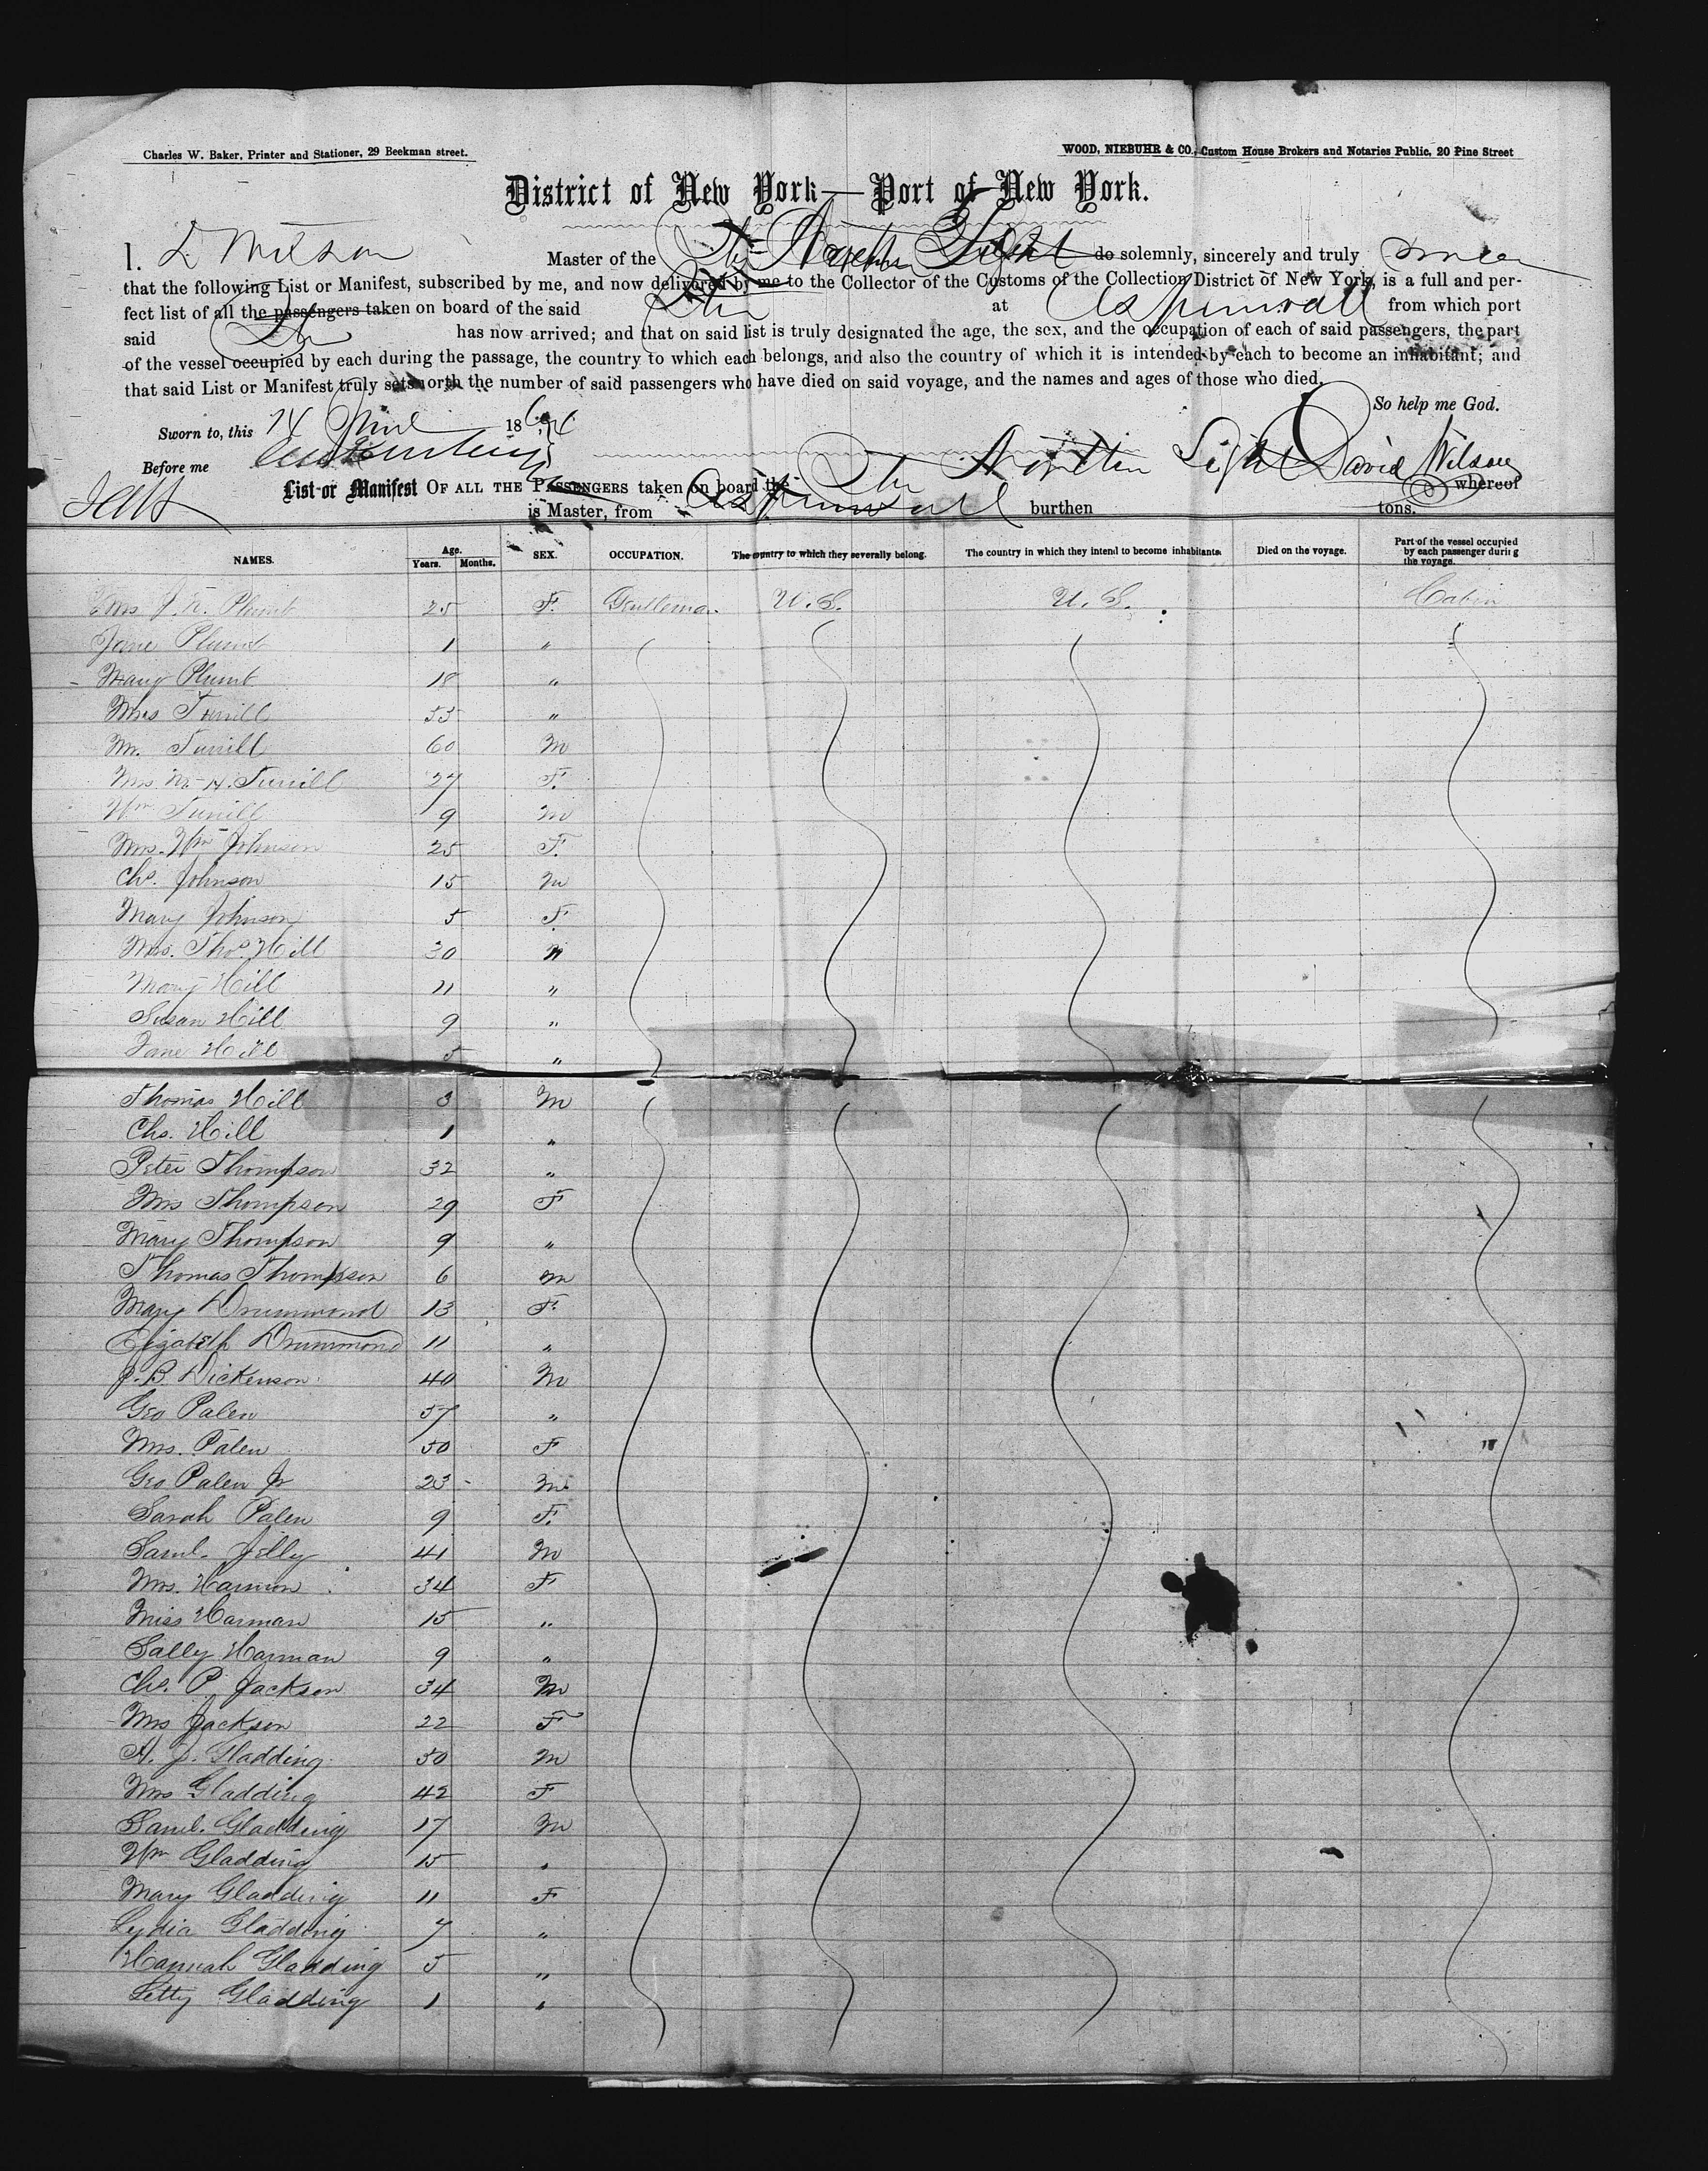 Charles W. Baker, Printer and Stationer, 29 Beekman street.
WOOD, NIEBUHR & CO., Custom House Brokers and Notaries Public, 20 Pine Street
District of New York—Port of New York.
I, D. Wilson Master of the Str Northern Light do solemnly, sincerely and truly swear
that the following List or Manifest, subscribed by me, and now delivered by me to the Collector of the Customs of the Collection District of New York, is a full and per-
fect list of all the passengers taken on board of the said Str at Aspinwall from which port
said Str has now arrived; and that on said list is truly designated the age, the sex, and the occupation of each of said passengers, the part
of the vessel occupied by each during the passage, the country to which each belongs, and also the country of which it is intended by each to become an inhabitant; and
that said List or Manifest truly sets forth the number of said passengers who have died on said voyage, and the names and ages of those who died.
So help me God.
Sworn to, this 14 1864
Before me
David Wilson
List or Manifest OF ALL THE PASSENGERS taken on board the Str Northern Light whereof
is Master, from Aspinwall burthen tons.
NAMES. Age. Years. Months. SEX. OCCUPATION. The country to which they severally belong. The country in which they intend to become inhabitants. Died on the voyage. Part of the vessel occupied by each passenger during the voyage.
Mrs J. R. Plumb 25 F. Gentleman U.S. U.S. Cabin
Jane Plumb 1 "
Mary Plumb 18 "
Mrs Turrill 55 "
Mr. Turrill 60 M
Mrs M. H. Turrill 27 F.
Wm Turrill 9 M
Mrs. Wm Johnson 25 F.
Chs. Johnson 15 M
Mary Johnson 5 F.
Mrs. Thos. Hill 30 "
Mary Hill 11 "
Susan Hill 9 "
Jane Hill 5 "
Thomas Hill 3 M
Chs. Hill 1 "
Peter Thompson 32 "
Mrs Thompson 29 F
Mary Thompson 9 "
Thomas Thompson 6 M
Mary Drummond 13 F.
Elizabeth Drummond 11 "
J. B. Dickenson 40 M
Geo Palen 57 "
Mrs. Palen 50 F
Geo Palen Jr 23 M
Sarah Palen 9 F.
Saml. Jelly 41 M
Mrs. Harmon 34 F
Miss Harman 15 "
Sally Harman 9 "
Chs. P. Jackson 34 M
Mrs Jackson 22 F
A. J. Gladding 50 M
Mrs Gladding 42 F
Saml. Gladding 17 M
Wm Gladding 15 "
Mary Gladding 11 F
Lydia Gladding 7 "
Hannah Gladding 5 "
Letty Gladding 1 "